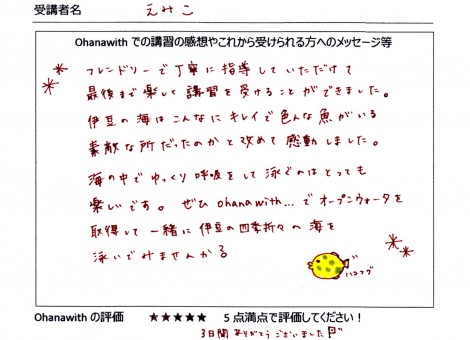 受講者名 えみこ
Ohanawith での講習の感想やこれから受けられる方へのメッセージ等
フレンドリーで丁寧に指導していただけて
最後まで楽しく講習を受けることができました。
伊豆の海はこんなにキレイで色んな魚がいる
素敵な所だったのかと改めて感動しました。
海の中でゆっくり呼吸をして泳ぐのはとっても
楽しいです。ぜひohanawith...でオープンウォータを
取得して一緒に伊豆の四季折々の海を
泳いでみませんかる
ハコフグ
Ohanawith の評価 ★★★★★ 5点満点で評価してください！
3日間ありがとうございました